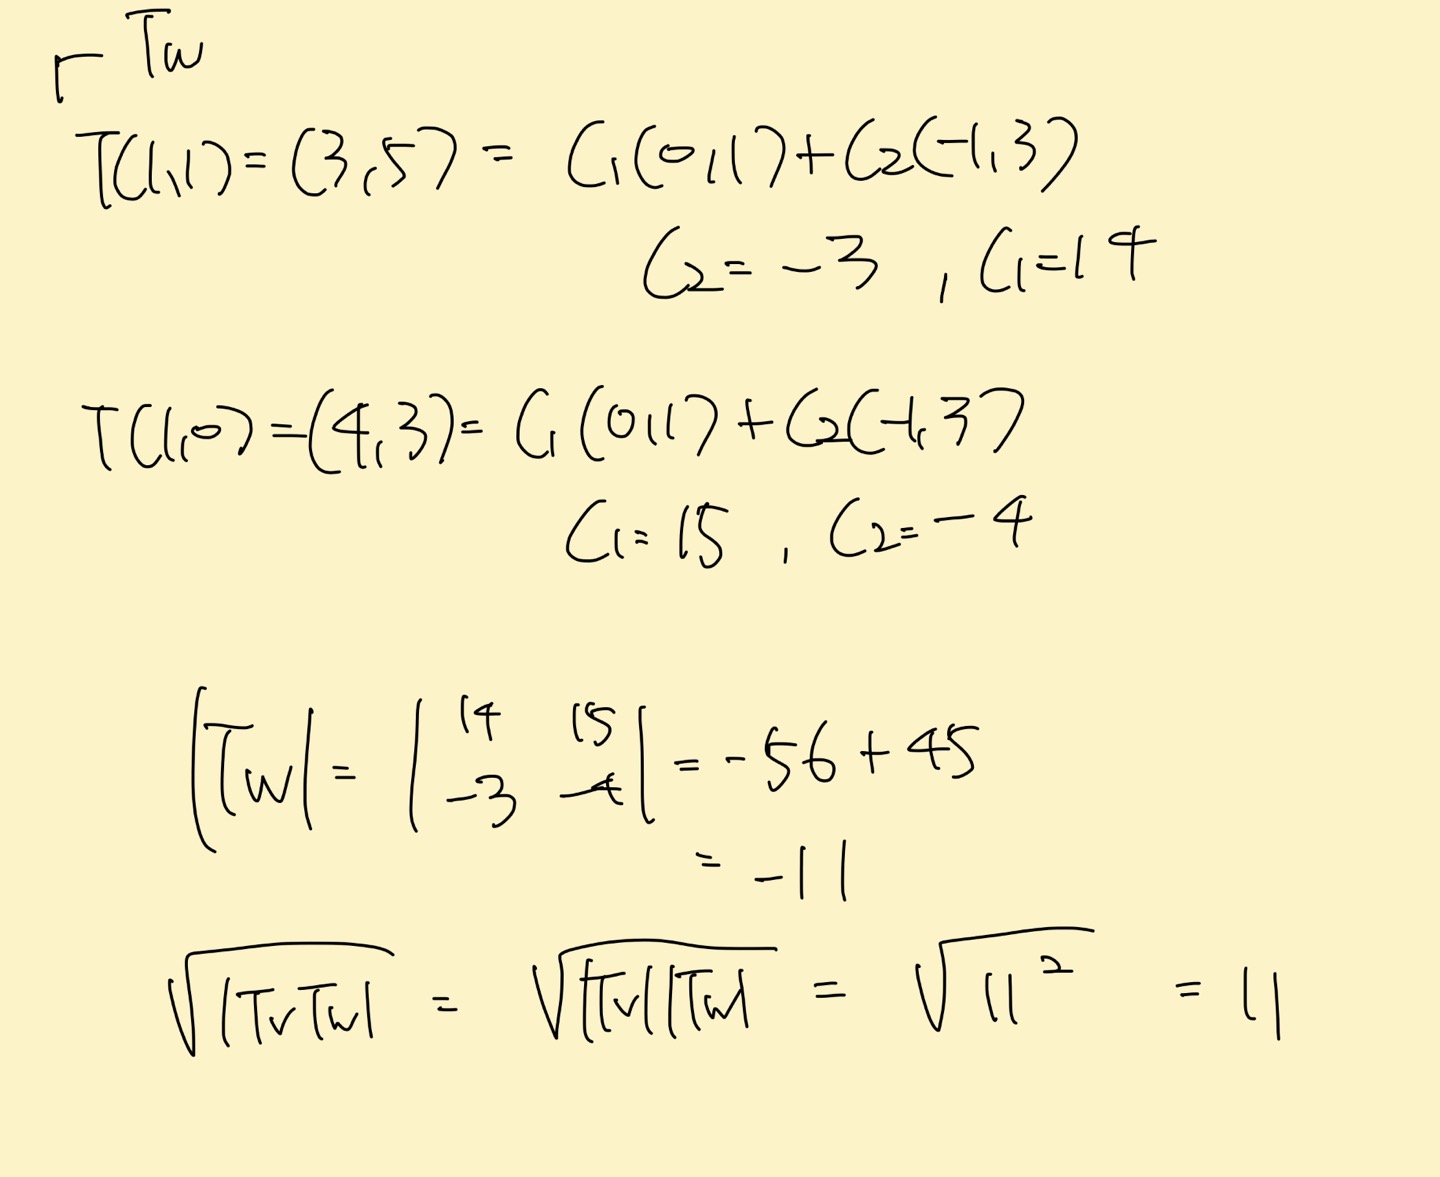 Tw
T(1,1) = (3,5) = C₁(0,1)+C₂(-1,3)
C₂ = -3 , C₁=14
T(1,0) =(4,3)= C₁(0,1)+C₂(-1,3)
C₁= 15 , C₂= -4
|Tw| = | 14 15 -3 -4 | = -56 + 45
= -11
√|TvTw| = √|Tv||Tw| = √11² = 11